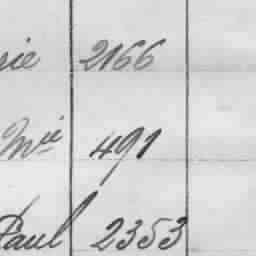 sie 2166
Mie 491
Paul 2353